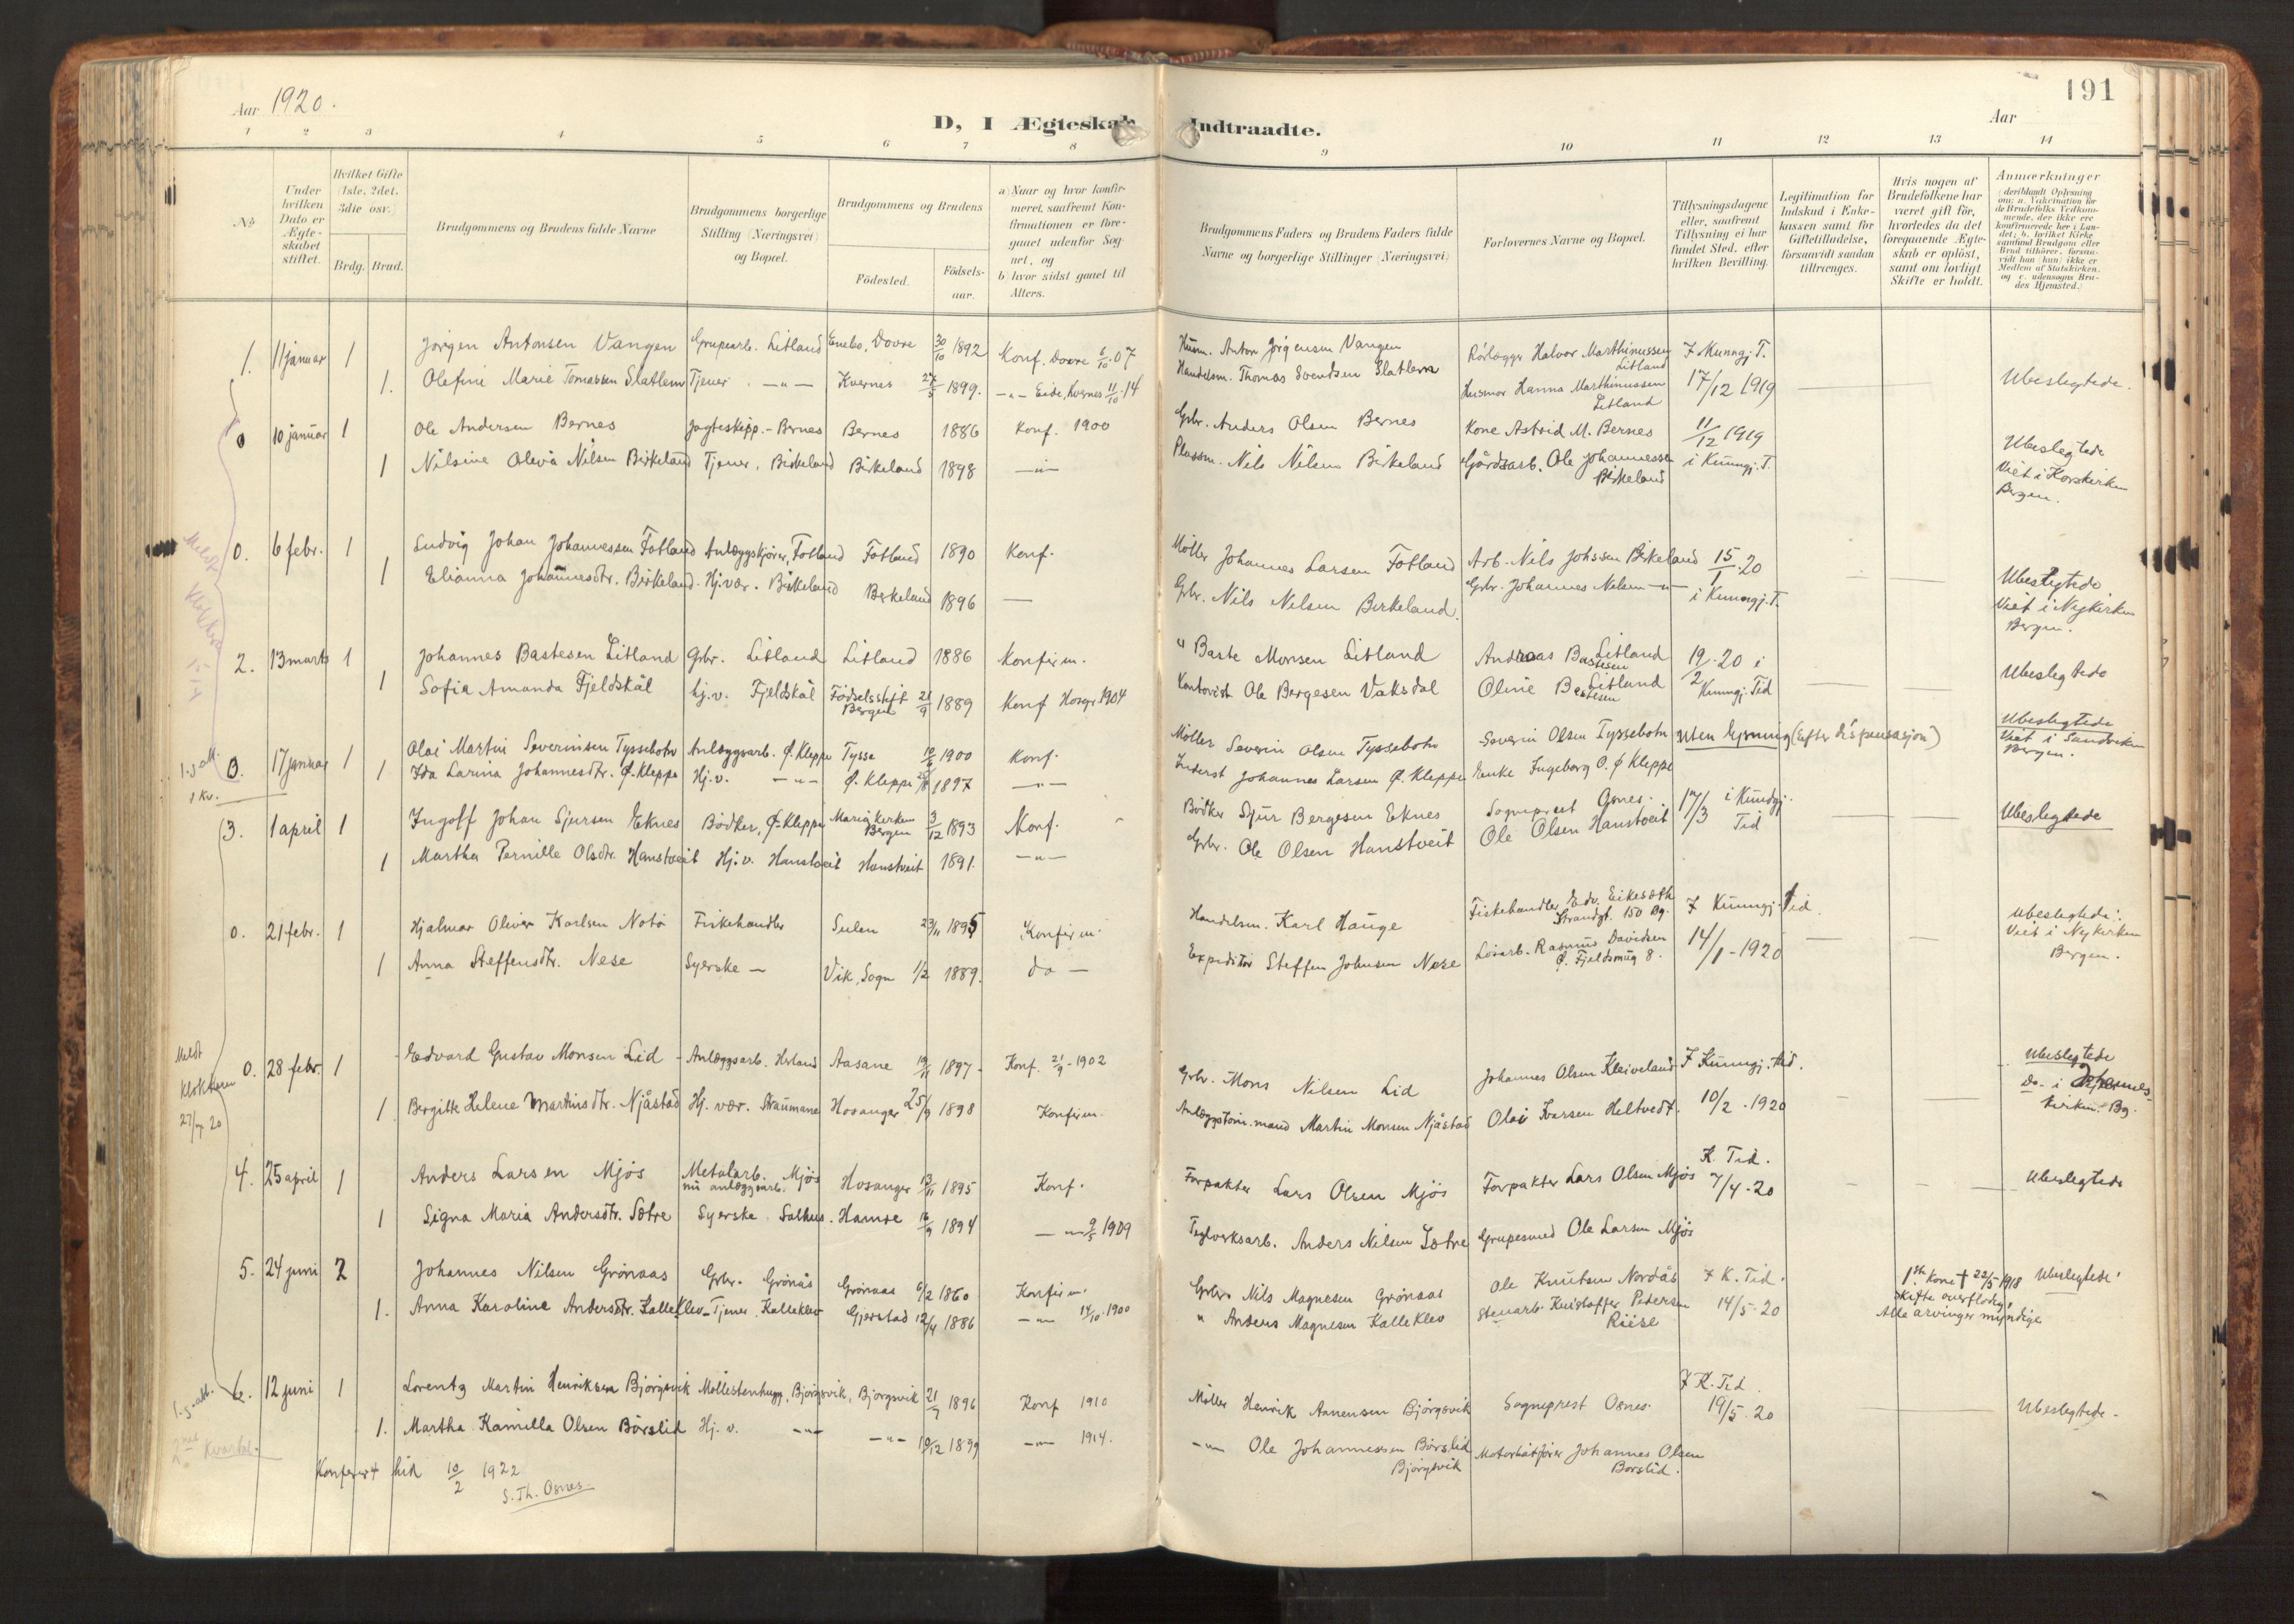 191
Aar 1920.
D, I Ægteskab Indtraadte.
Aar
1 2 3 4 5 6 7 8 9 10 11 12 13 14
No
Under hvilken Dato er Ægteskabet stiftet.
Hvilket Gifte (1ste, 2det, 3die osv.)
Brdg. Brud.
Brudgommens og Brudens fulde Navne
Brudgommens borgerlige Stilling (Næringsvei) og Bopæl.
Brudgommens og Brudens
Födested.
Födsels-aar.
a) Naar og hvor konfirmeret, saafremt Konfirmationen er foregaaet udenfor Sognet, og
b) hvor sidst gaaet til Alters.
Brudgommens Faders og Brudens Faders fulde Navne og borgerlige Stillinger (Næringsvei)
Forlovernes Navne og Bopæl.
Tillysningsdagene eller, saafremt Tillysning ei har fundet Sted, efter hvilken Bevilling.
Legitimation for Indskud i Enkekassen samt for Giftetilladelse, forsaavidt saadan tiltrænges.
Hvis nogen af Brudefolkene har været gift för, hvorledes da det foregaaende Ægteskab er oplöst, samt om lovligt Skifte er holdt.
Anmærkninger
(deriblandt Oplysning om: a. Vakcination for de Brudefolks Vedkommende, der ikke ere konfirmerede her i Landet; b. hvilket Kirkesamfund Brudgom eller Brud tilhörer, forsaavidt han (hun) ikke er Medlem af Statskirken, og c. udensogns Brudes Hjemsted.)
1. 11 januar 1 Jörgen Antonsen Vangen Grupearb. Litland Enebo, Dovre 30/10 1892 Konf. Dovre 6/10 07 Husm. Anton Jörgensen Vangen Rörlægger Halvor Marthinussen Litland F. Kunngj. T.
1. Olefine Marie Tomassen Slatlem Tjener - " - Kvernes 27/5 1899. - " - Eide, Kvernes 11/10 14 Handelsm. Thomas Svendsen Slatlem Husmor Hanna Marthinussen Litland 17/12 1919 Ubeslegtede.
0 10 januar 1 Ole Andersen Bernes Jagteskipp. - Bernes Bernes 1886 Konf. 1900 Gbr. Anders Olsen Bernes Kone Astrid M. Bernes 11/12 1919
1 Nilsine Olevia Nilsen Birkeland Tjener, Birkeland Birkeland 1898 - " - Plassm. Nils Nilsen Birkeland Gårdsarb. Ole Johannessen Birkeland i Kunngj. T. Ubeslegtede Viet i Korskirken Bergen.
0. 6 febr. 1 Ludvig Johan Johannessen Fotland Anlæggskjörer, Fotland Fotland 1890 Konf. Möller Johannes Larsen Fotland Arb. Nils Johssen Birkeland 15/1 20
1 Elianna Johannesdtr. Birkeland Hj.vær. Birkeland Birkeland 1896 — Gbr. Nils Nilsen Birkeland. Gbr. Johannes Nilsen - " - i Kunngj. T. Ubeslegtede Viet i Nykirken Bergen.
2. 13 marts 1 Johannes Bastesen Litland Gbr. Litland Litland 1886 Konfirm. " Baste Monsen Litland Andreas Bastesen Litland 19/2 20 i
1 Sofia Amanda Fjeldskål hj.v. Fjeldskål Födselsstift Bergen 21/9 1889 Konf Hosgr 1904 Kontorist Ole Bergesen Vaksdal Oline Bastesen Litland Kunngj. Tid Ubeslegtede
0. 17 januar 1 Olai Martin Severinsen Tyssebotn Anlæggsarb. Ø. Kleppe Tysse 10/6 1900 Konf. Möller Severin Olsen Tyssebotn Severin Olsen Tyssebotn Uten lysning (efter dispensasjon) Ubeslegtede Viet i Sandviken Bergen.
1 Ida Larina Johannesdtr. Ø. Kleppe Hj.v. - " - Ø. Kleppe 1897 - " - Inderst Johannes Larsen Ø. Kleppe Enke Ingeborg O. Ø Kleppe
1.ste att.
1 Kv.
3. 1 april 1 Ingolf Johan Sjursen Eknes Bödker, Ø-Kleppe Mariakirken Bergen 3/12 1893 Konf. Bödker Sjur Bergesen Eknes Sogneprest Osnes. 17/3 i Kundgj. Tid Ubeslegtede
1 Martha Pernille Olsdtr. Hanstveit Hj.v. Hanstveit Hanstveit 1891. - " - Gbr. Ole Olsen Hanstveit Ole Olsen Hanstveit
0. 21 febr. 1 Hjalmar Oliver Karlsen Notö Fiskehandler Sulen 23/11 1895 Konfirm. Handelsm. Karl Hauge Fiskehandler Edv. Eikesæth Strandgt. 150 Bg. F Kunngj. Tid.
1 Anna Steffensdtr. Nese Syerske — Vik, Sogn 1/2 1889. do — Expeditör Steffen Johnsen Nese Lösarb. Rasmus Davidsen Ø. Fjeldsmug 8. 14/1 - 1920 Ubeslegtede. Viet i Nykirken Bergen.
0. 28 febr. 1 Edvard Gustav Monsen Lid - Anlæggsarb. Herland Aasane 19/11 1897 - Konf. 21/9 - 1902 Gbr. Mons Nilsen Lid Johannes Olsen Kleiveland F Kunngj. tid.
1 Bergitte Helene Martinsdtr. Njåstad Hj. vær. Straumane Hosanger 25/9 1898 Konfirm. Anlæggstöm.mand Martin Monsen Njåstad Olai Ivarsen Heltvedt. 10/2 . 1920 Ubeslegtede Do. i Johanneskirken Bg.
Meldt Klokkeren 27/4 20
4. 25 april 1 Anders Larsen Mjös Metalarb. Mjös nu anlæggsarb. Hosanger 13/11 1895 Konf. Forpakter Lars Olsen Mjös Forpakter Lars Olsen Mjös K. Tid. 7/4 - 20 Ubeslegtede
1 Signa Maria Andersdtr. Sætre Syerske Salhus. Hamre 16/9 1894 - " - 9/5 1909 Teglverksarb. Anders Nilsen Sætre Grupesmed Ole Larsen Mjös
5. 24 juni 2 Johannes Nilsen Grönaas Gbr. Grönås Grönaas 6/2 1860 Konfirm. Gbr. Nils Magnesen Grönaas Ole Knutsen Nordås F K. Tid. 1ste kone † 22/5 1918 skifte overflödig, Alle arvinger myndige Ubeslegtede
1. Anna Karoline Andersdtr. Kalleklev - Tjener Kalleklev Gjerstad 12/4 1886 - " - 14/10 1900 " Anders Magnesen Kalleklev Stenarb. Kristoffer Pedersen Riise 14/5 - 20
6. 12 juni 1 Lorentz Martin Henriksen Björgsvik Möllestenhugg. Björgsvik, Björgsvik 21/7 1896 Konf 1910 Möller Henrik Annensen Björgsvik Sogneprest Osnes. F K. Tid. 19/5 - 20 Ubeslegtede -
1. Martha Kamilla Olsen Börslid Hj. v. - " - - " - 10/12 1899 - " - 1914. - " - Ole Johannessen Börslid Björgsvik Motorbåtförer Johannes Olsen Borslid.
1.ste att.
2net Kvartal.
Konferert hid 10/2 1922
S. Th. Osnes